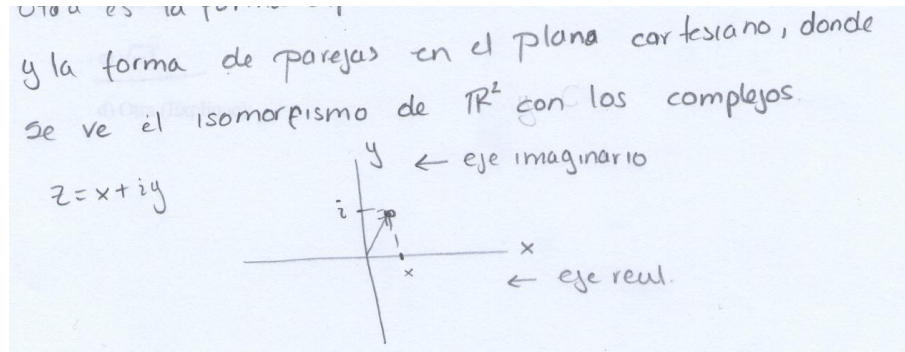 Otra es la forma
y la forma de parejas en el plano cartesiano, donde
se ve el isomorfismo de ℝ² con los complejos.
z = x + iy
y ← eje imaginario
i
x
x
← eje real.